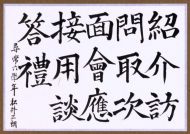 紹介訪
問取次
面會應
接用談
答禮